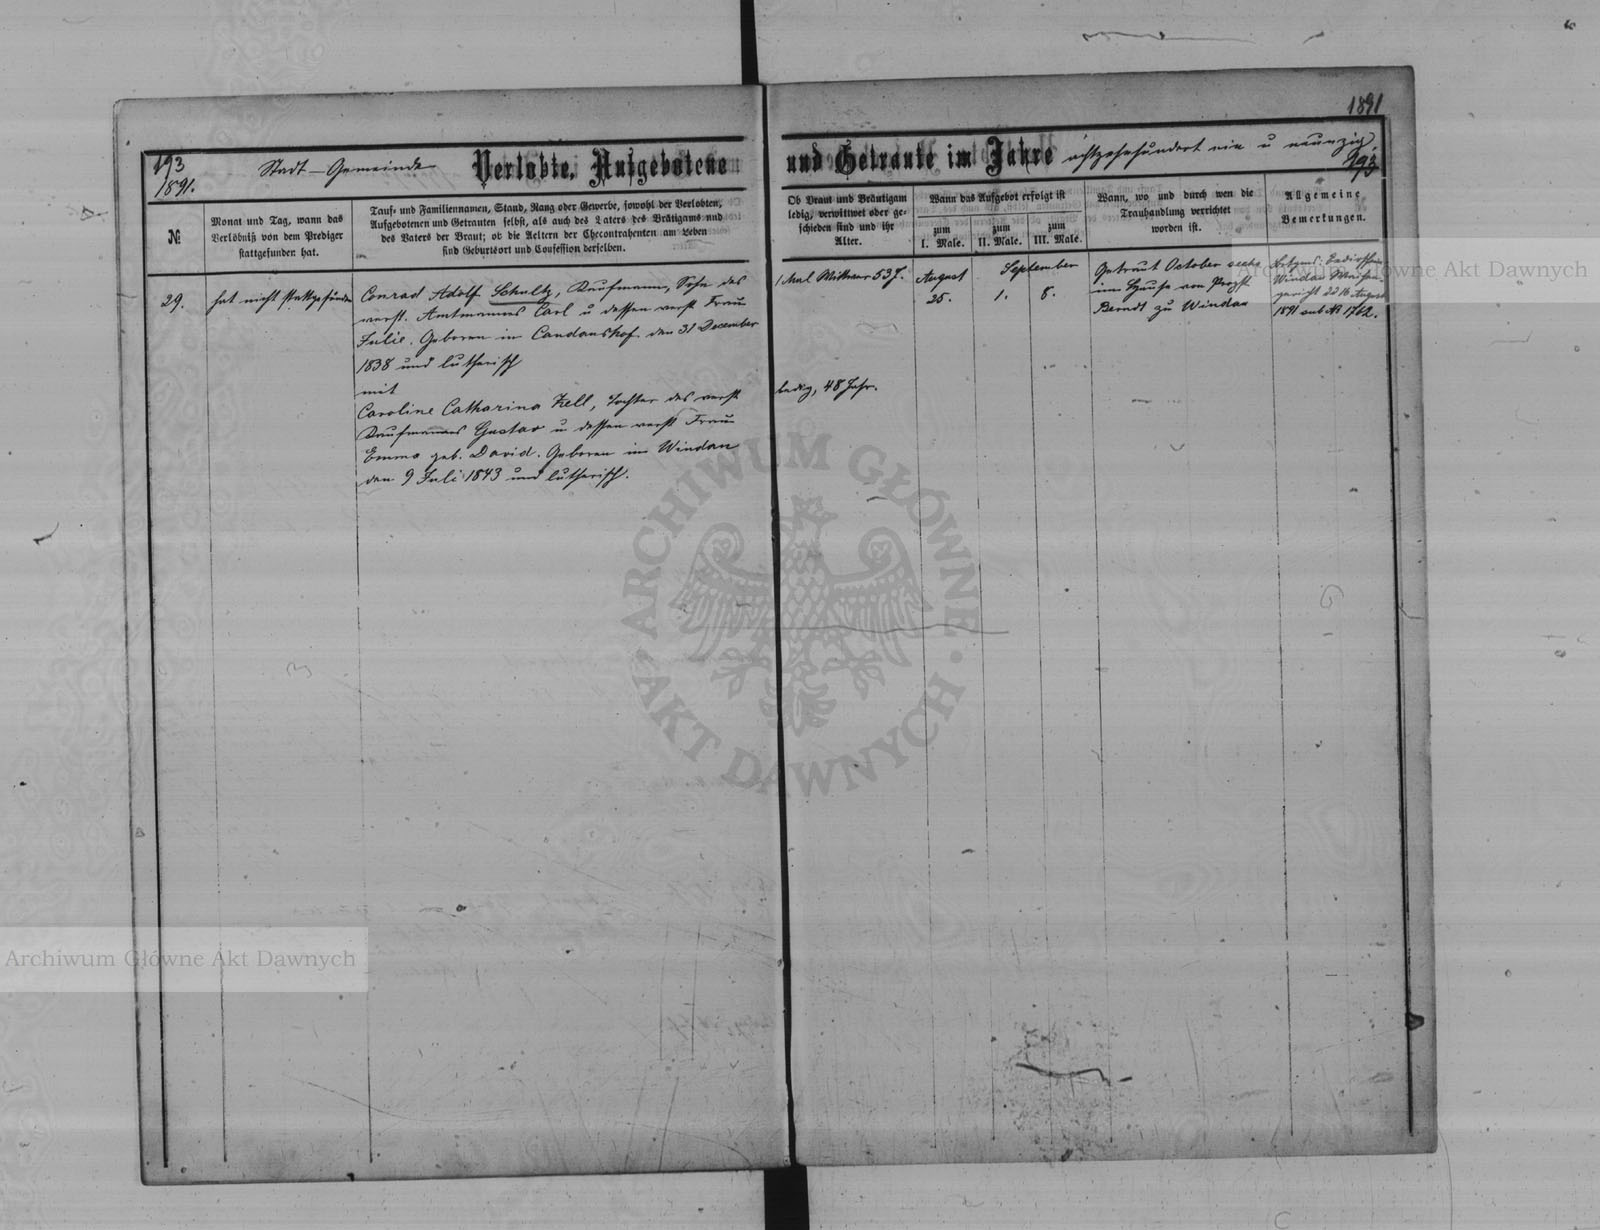 1891
193
1891.
Stadt-Gemeinde
Verlobte, Aufgebotene
und Getraute im Jahre
achtzehnhundert ein u neunzig.
193
№
Monat und Tag, wann das
Verlöbniß von dem Prediger
stattgefunden hat.
Tauf- und Familiennamen, Stand, Rang oder Gewerbe, sowohl der Verlobten,
Aufgebotenen und Getrauten selbst, als auch des Vaters des Brätigams und
des Vaters der Braut; ob die Aeltern der Ehecontrahenten am Leben
sind Geburtsort und Confession derselben.
Ob Braut und Bräutigam
ledig, verwittwet oder ge-
schieden sind und ihr
Alter.
Wann das Aufgebot erfolgt ist
zum
I. Male.
zum
II. Male.
zum
III. Male.
Wann, wo und durch wen die
Trauhandlung verrichtet
worden ist.
Allgemeine
Bemerkungen.
29.
hat nicht stattgefunden
Conrad Adolf Schultz, Kaufmann, Sohn des
verst. Amtmannes Carl u dessen verst Frau
Julie. Geboren in Candanshof den 31 December
1838 und lutherisch
mit
Caroline Catharina Kell, Tochter des verst
Kaufmannes Gustav u dessen verst Frau
Emma geb. David. Geboren in Windau
den 9 Juli 1843 und lutherisch.
1 Mal Wittwer 53 J.
ledig, 48 Jahr.
August
25.
September
1. 8.
Getraut October sechs
im Hause von Propst
Berndt zu Windau
Windau Waisen-
gericht dd 16 August
1891 sub № 1762.
Archiwum Główne Akt Dawnych
ARCHIWUM GŁÓWNE · AKT DAWNYCH ·
Archiwum Główne Akt Dawnych